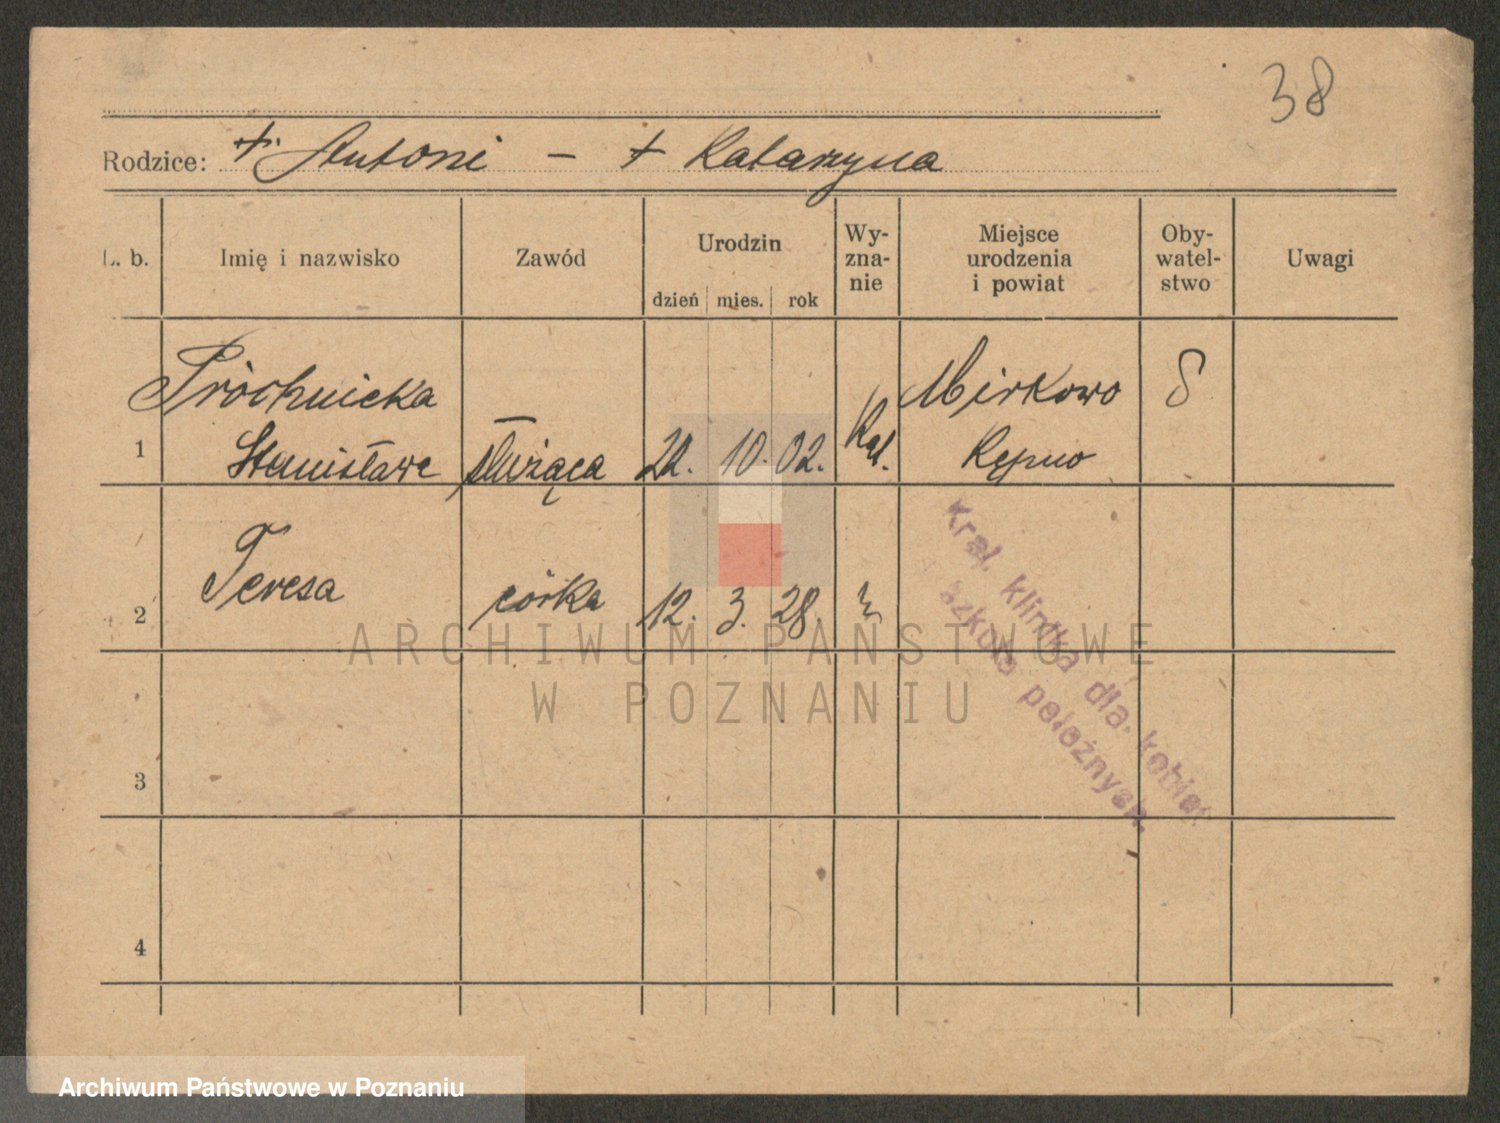 38
Rodzice: + Antoni - + Katarzyna
L. b. Imię i nazwisko Zawód Urodzin dzień mies. rok Wy-zna-nie Miejsce urodzenia i powiat Oby-watel-stwo Uwagi
Próchnicka Mirkowo
1 Stanisława służąca 10. 02. Kat. Kępno
2 Teresa córka 12. 3. 28.
3
4
Kral. klinika dla kobiet
szkoła położnych.
ARCHIWUM PAŃSTWOWE
W POZNANIU
Archiwum Państwowe w Poznaniu